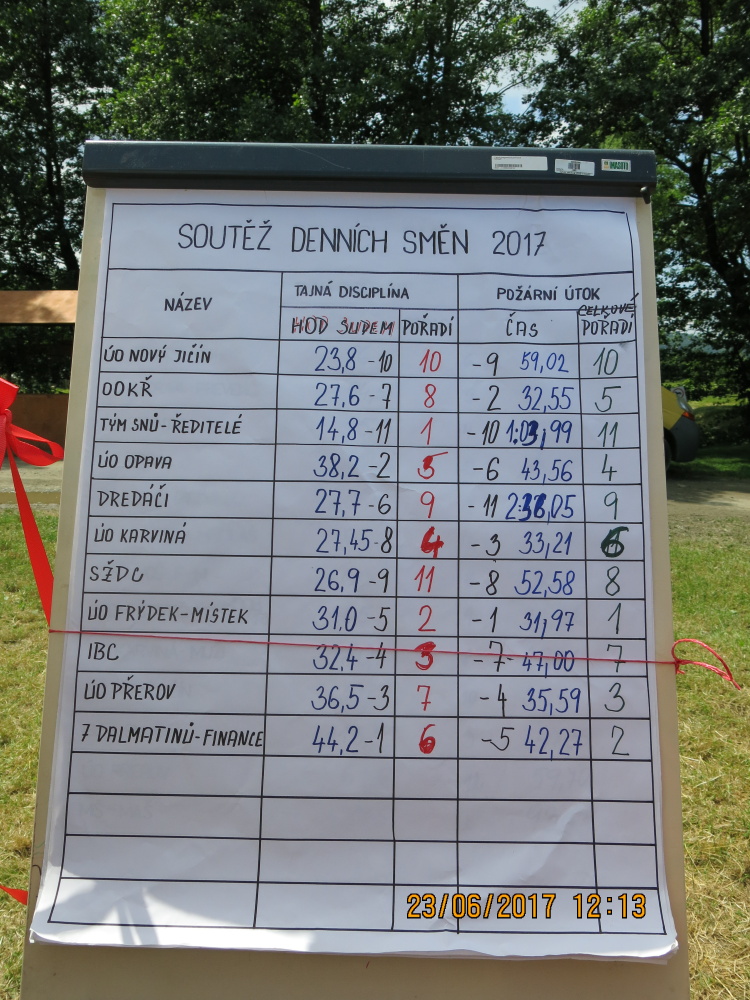 SOUTĚŽ DENNÍCH SMĚN 2017
NÁZEV TAJNÁ DISCIPLÍNA POŽÁRNÍ ÚTOK
HOD SUDEM POŘADÍ ČAS CELKOVÉ POŘADÍ
ÚO NOVÝ JIČÍN 23,8 -10 10 -9 59,02 10
OOKŘ 27,6 -7 8 -2 32,55 5
TÝM SNŮ-ŘEDITELÉ 14,8 -11 1 -10 1:03,99 11
ÚO OPAVA 38,2 -2 5 -6 43,56 4
DREDÁČI 27,7 -6 9 -11 2:38,05 9
ÚO KARVINÁ 27,45 -8 4 -3 33,21 6
SŽDC 26,9 -9 11 -8 52,58 8
ÚO FRÝDEK-MÍSTEK 31,0 -5 2 -1 31,97 1
IBC 32,4 -4 3 -7 47,00 7
ÚO PŘEROV 36,5 -3 7 -4 35,59 3
7 DALMATINŮ-FINANCE 44,2 -1 6 -5 42,27 2
23/06/2017 12:13